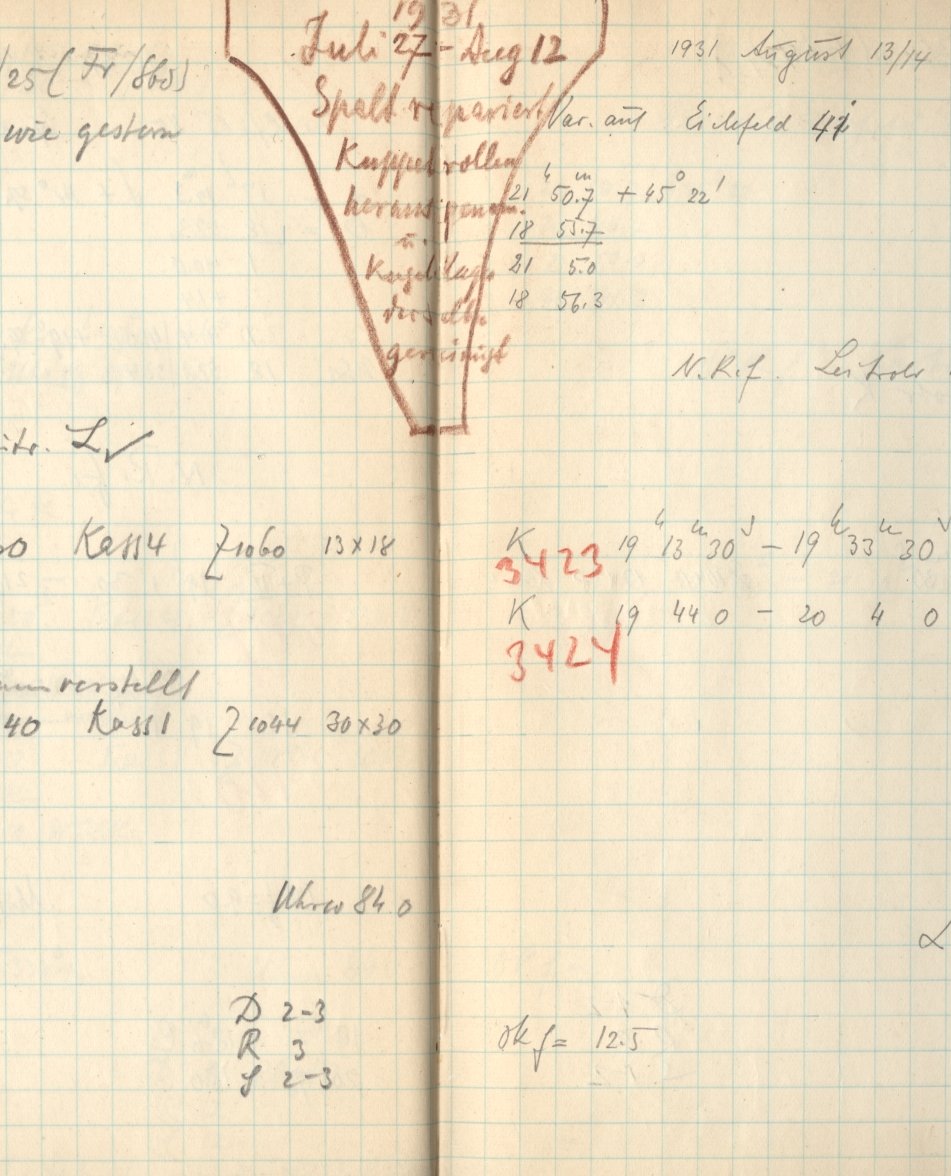 1931
Juli 27 - Aug 12
Spalt repariert
Kuppelrollen
herausgenom.
u.
Kugellag.
derselb.
gereinigt
/25 (Fr/860)
wie gestern
L ✓
0 Kass4 Z1060 13x18
verstellt
40 Kass1 Z1044 30x30
Uhrw 84.0
D 2-3
R 3
S 2-3
1931 August 13/14
Var. aut Eichfeld 41
21 h 50.7 m + 45° 22'
18 55.7
21 5.0
18 56.3
N.R.f. Leitrohr
K 19 h 13 m 30 s - 19 h 33 m 30 s
3423
K 19 44 0 - 20 4 0
3424
α
Okf = 12.5